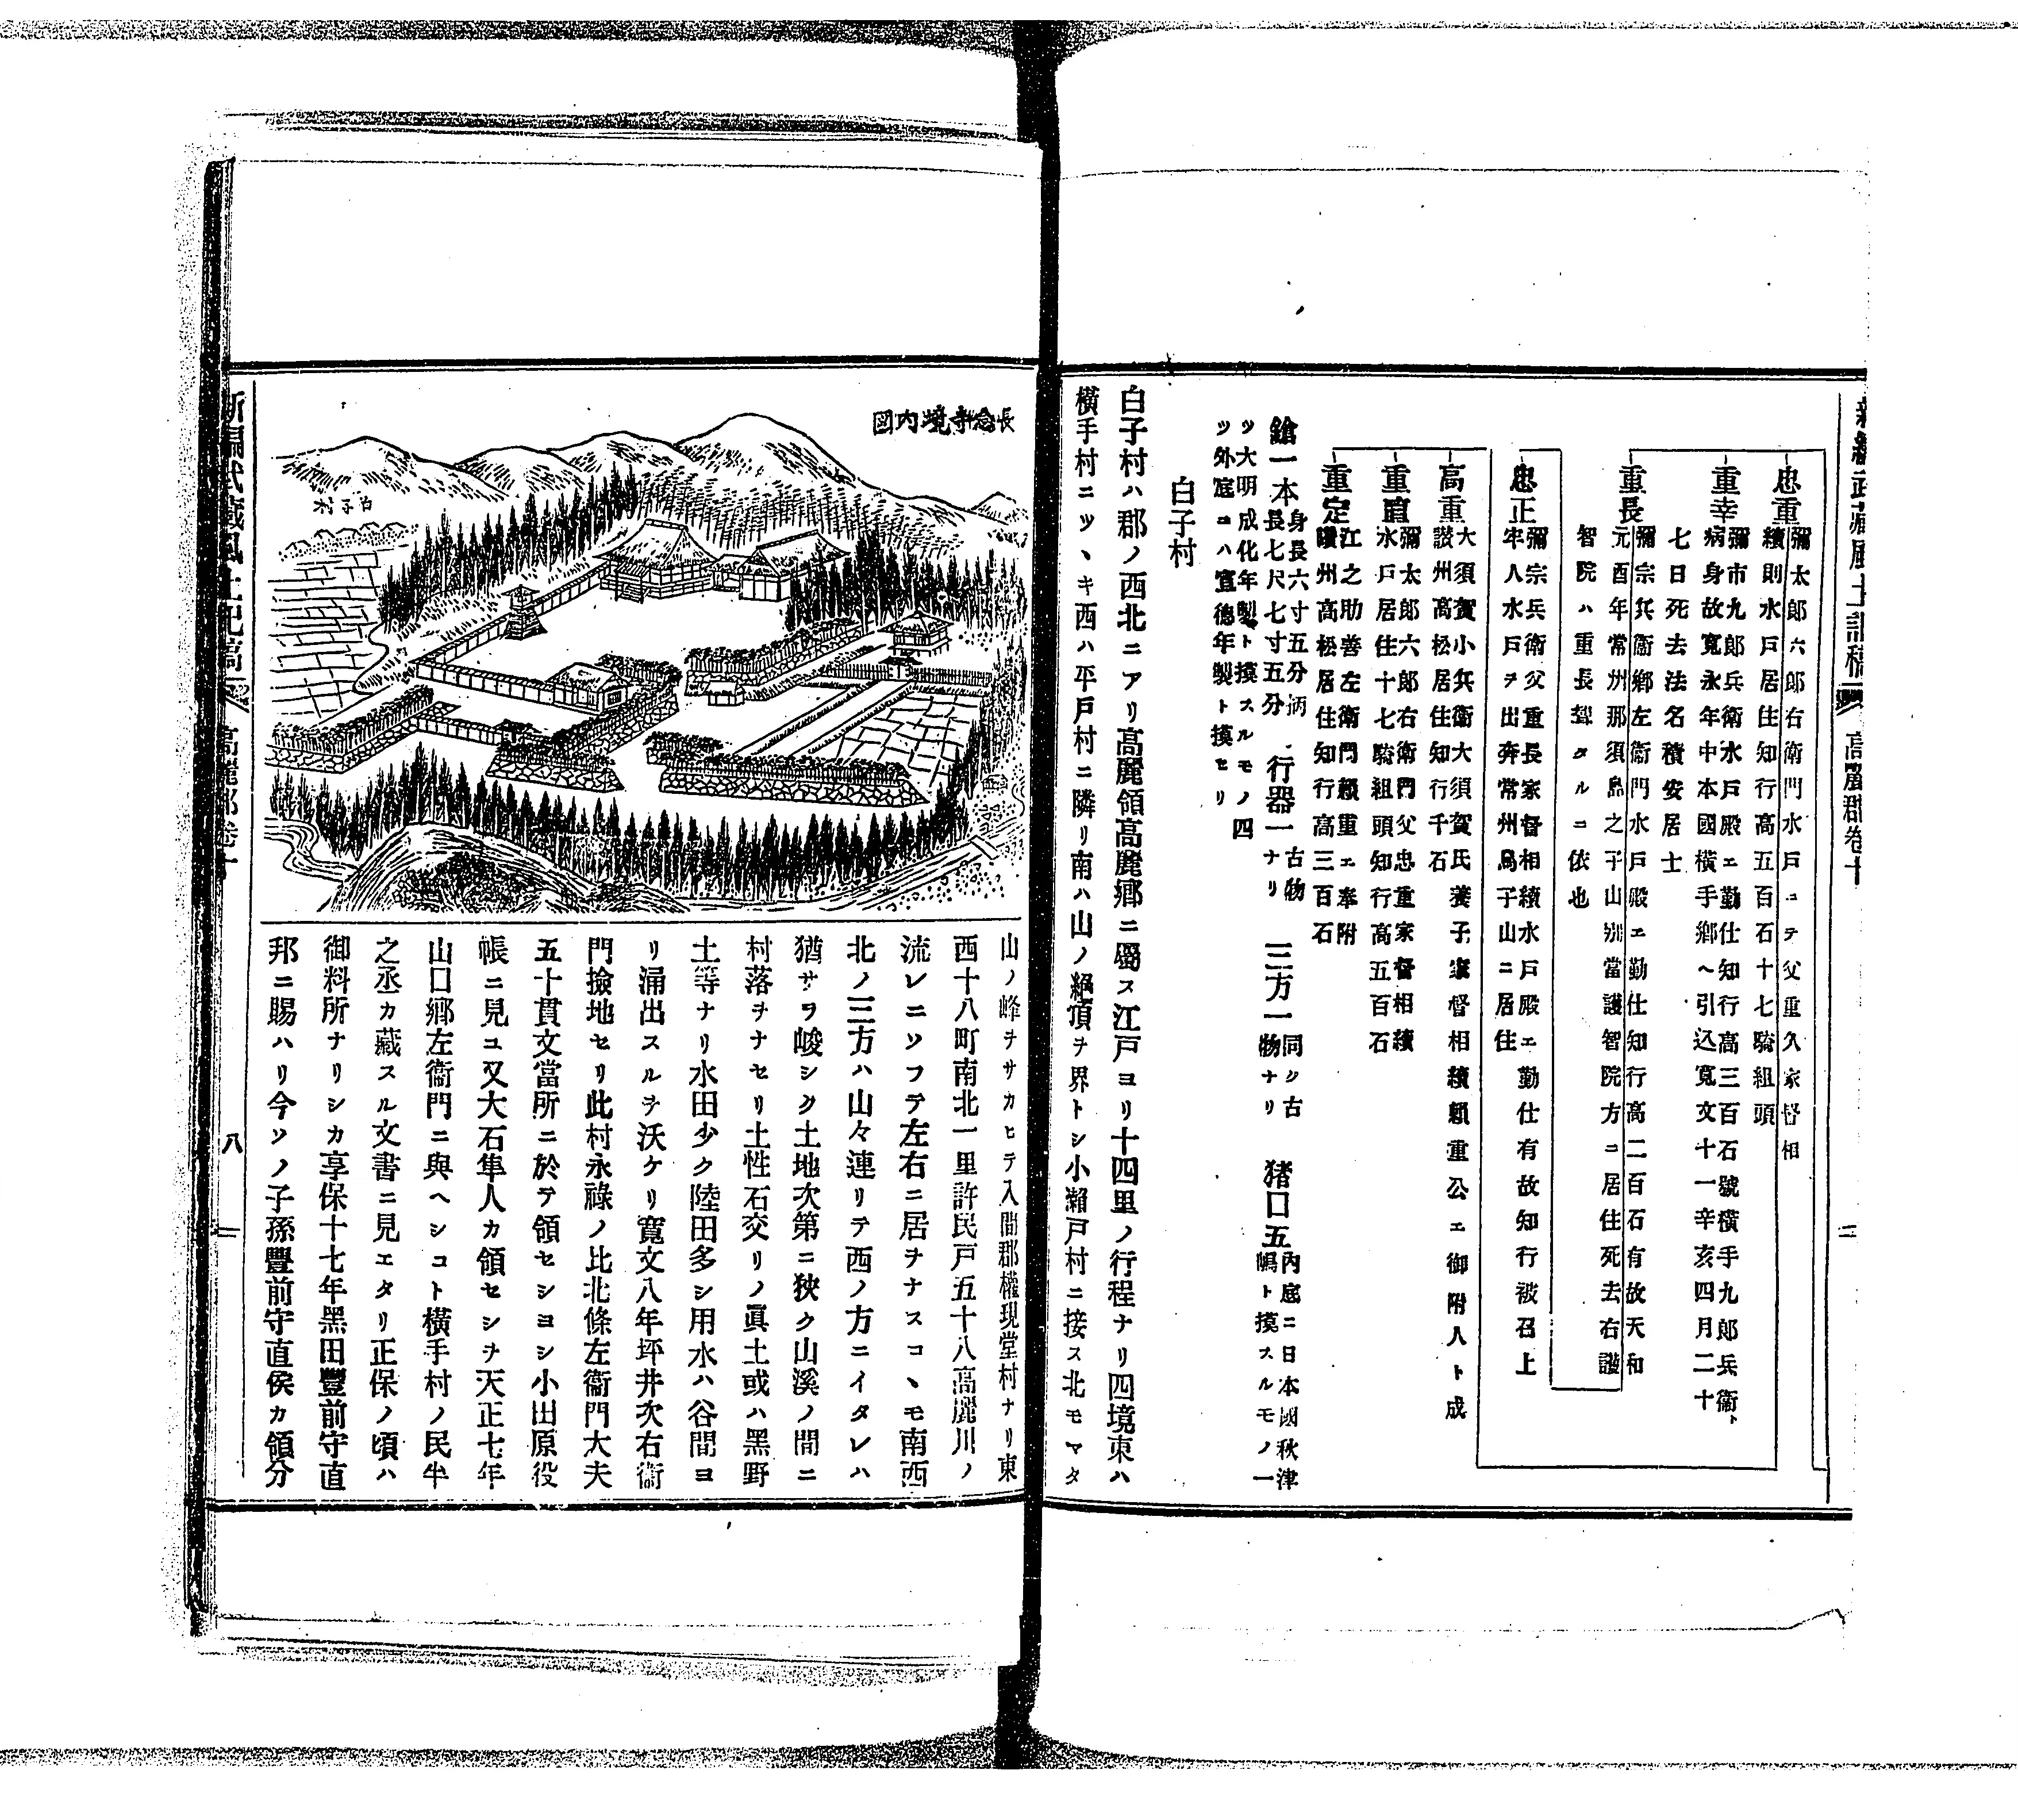 忠重
彌太郎六郎右衛門水戸ニテ父重久家督相
續則水戸居住知行高五百石十七騎組頭
重幸
彌市九郎兵衛水戸殿エ勤仕知行高三百石號横手九郎兵衛、
病身故寬永年中本國横手鄉ヘ引込寬文十一辛亥四月二十
七日死去法名積安居士
重長
彌宗兵衞鄉左衞門水戸殿エ勤仕知行高二百石有故天和
元酉年常州那須烏之子山別當護智院方ニ居住死去右護
智院ハ重長聟タルニ依也
忠正
彌宗兵衛父重長家督相續水戸殿エ勤仕有故知行被召上
牢人水戸ヲ出奔常州烏子山ニ居住
高重
大須賀小兵衞大須賀氏養子家督相續賴重公エ御附人ト成
讃州高松居住知行千石
重直
彌太郎六郎右衛門父忠重家督相續
水戸居住十七騎組頭知行高五百石
重定
江之助善左衛門賴重エ奉附
讃州高松居住知行高三百石
鎗一本身長六寸五分柄長七尺七寸五分 行器一古物ナリ 三方一同シ古物ナリ 猪口五內底ニ日本國秋津嶋ト摸スルモノ一
ツ大明成化年製ト摸スルモノ四
ツ外底ニハ宣德年製ト摸セリ
白子村
白子村ハ郡ノ西北ニアリ高麗領高麗鄉ニ屬ス江戸ヨリ十四里ノ行程ナリ四境東ハ
横手村ニツヽキ西ハ平戸村ニ隣リ南ハ山ノ絕頂ヲ界トシ小瀨戸村ニ接ス北モマタ
長念寺境內図
白子村
山ノ峰ヲサカヒテ入間郡權現堂村ナリ東
西十八町南北一里許民戸五十八高麗川ノ
流レニソフテ左右ニ居ヲナスコヽモ南西
北ノ三方ハ山々連リテ西ノ方ニイタレハ
猶サラ峻シク土地次第ニ狹ク山溪ノ間ニ
村落ヲナセリ土性石交リノ眞土或ハ黑野
土等ナリ水田少ク陸田多シ用水ハ谷間ヨ
リ涌出スルヲ沃ケリ寬文八年坪井次右衞
門撿地セリ此村永祿ノ比北條左衞門大夫
五十貫文當所ニ於テ領セシヨシ小田原役
帳ニ見ユ又大石隼人カ領セシヲ天正七年
山口鄉左衞門ニ與ヘシコト横手村ノ民半
之丞カ藏スル文書ニ見エタリ正保ノ頃ハ
御料所ナリシカ享保十七年黑田豐前守直
邦ニ賜ハリ今ソノ子孫豐前守直侯カ領分
八